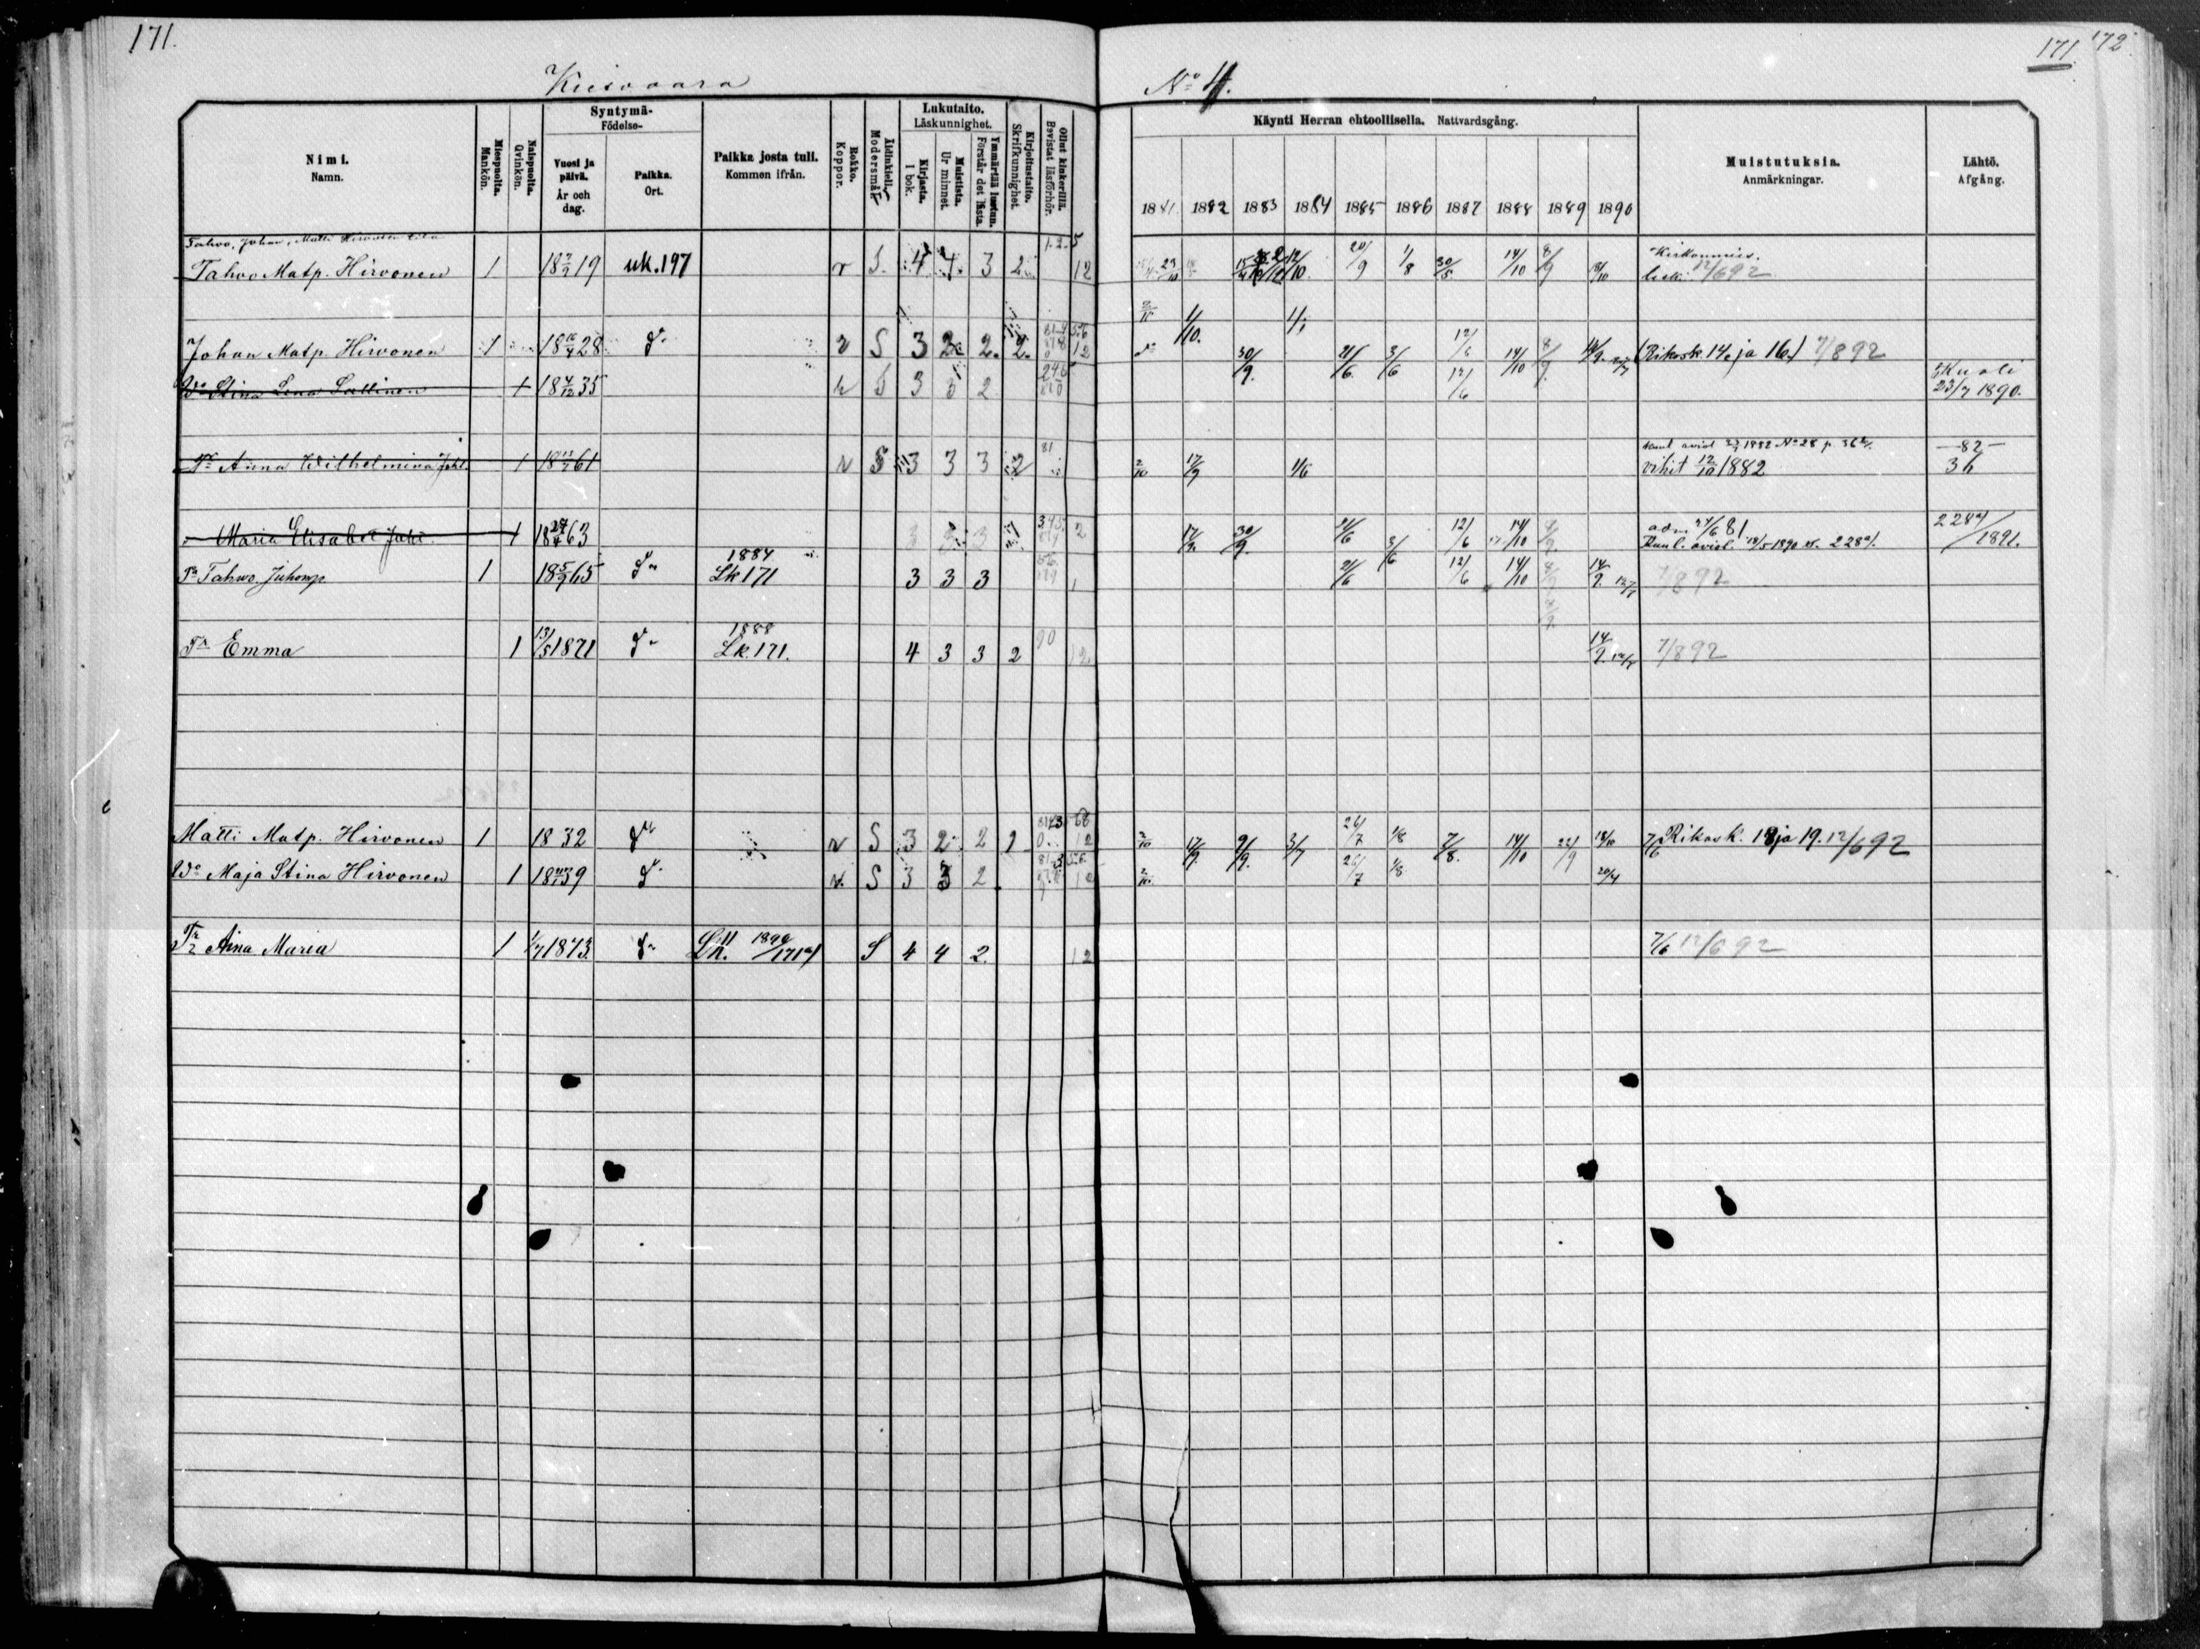 171.
171 172
Kiesvaara
No 4.
Nimi.
Namn.
Miespuolta.
Mankön.
Naispuolta.
Qvinkön.
Syntymä-
Födelse-
Vuosi ja päivä.
År och dag.
Paikka.
Ort.
Paikka josta tuli.
Kommen ifrån.
Rokko.
Koppor.
Äidinkieli.
Modersmål.
Lukutaito.
Läskunnighet.
Kirjasta.
I bok.
Muistista.
Ur minnet.
Ymmärtää luetun.
Förstår det lästa.
Kirjoitustaito.
Skrifkunnighet.
Ollut kinkerillä.
Bevistat läsförhör.
Käynti Herran ehtoollisella. Nattvardsgång.
1881. 1882 1883 1884 1885 1886 1887 1888 1889 1890
Muistutuksia.
Anmärkningar.
Lähtö.
Afgång.
Tahvo, Johan, Matti Hirvosen tila
Tahvo Matp. Hirvonen 1 18 2/9 19 uk. 197 r S. 4 4 3 2 12 20/9 1/8 30/5 14/10 8/9 Kirkonmies. leski 12/6 92
Johan Matp. Hirvonen 1 28 r S 3 2 2. 2. 12 1/10. 30/9. 21/6. 3/6 12/6 14/10 8/9. (Rikosk. 14 ja 16.) 7/8 92
Vo Stina Lena Sallinen 1 18 4/12 35 r S 3 3 2 12/6 Kuoli 23/7 1890.
Tr Anna Wilhelmina Joht. 1 61 r S 3 3 3 2 81 2/10 17/9 1/6 1882 No 28 p. 36 vihit 12/10 1882 -82- 36
Maria Elisabet Joht. 1 63 3 3 3 2 17/9. 30/9. 21/6 3/6 12/6 14/10 adm. 81. Kuul. avisl. 18/5 1890 s. 228a). 228a)/1891.
Pr Tahvo Juhonp 1 18 5/9 65 1884 Lk 171 3 3 3 1 21/6 12/6 14/10 14/9. 7/8 92
Tr Emma 1 13/5 1871 1888 Lk. 171. 4 3 3 2 90 12 14/9. 7/8 92
Matti Matp. Hirvonen 1 18 32 r S 3 2 2 1 12 2/10 17/9 9/9. 3/7 26/7 1/8 7/8. 14/10 22/9 18/10 7/6 Rikosk. 18 ja 19. 12/6 92
Vo Maja Stina Hirvonen 1 39 r. S 3 3 2 12 2/10. 26/7 1/8 20/4
Tr Aina Maria 1 1/7 1873. Lk. 11 1890/171a) S 4 4 2. 12 7/6 12/6 92